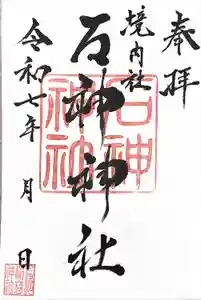 奉拝
境内社
石神神社
石神神社
令和七年 月 日